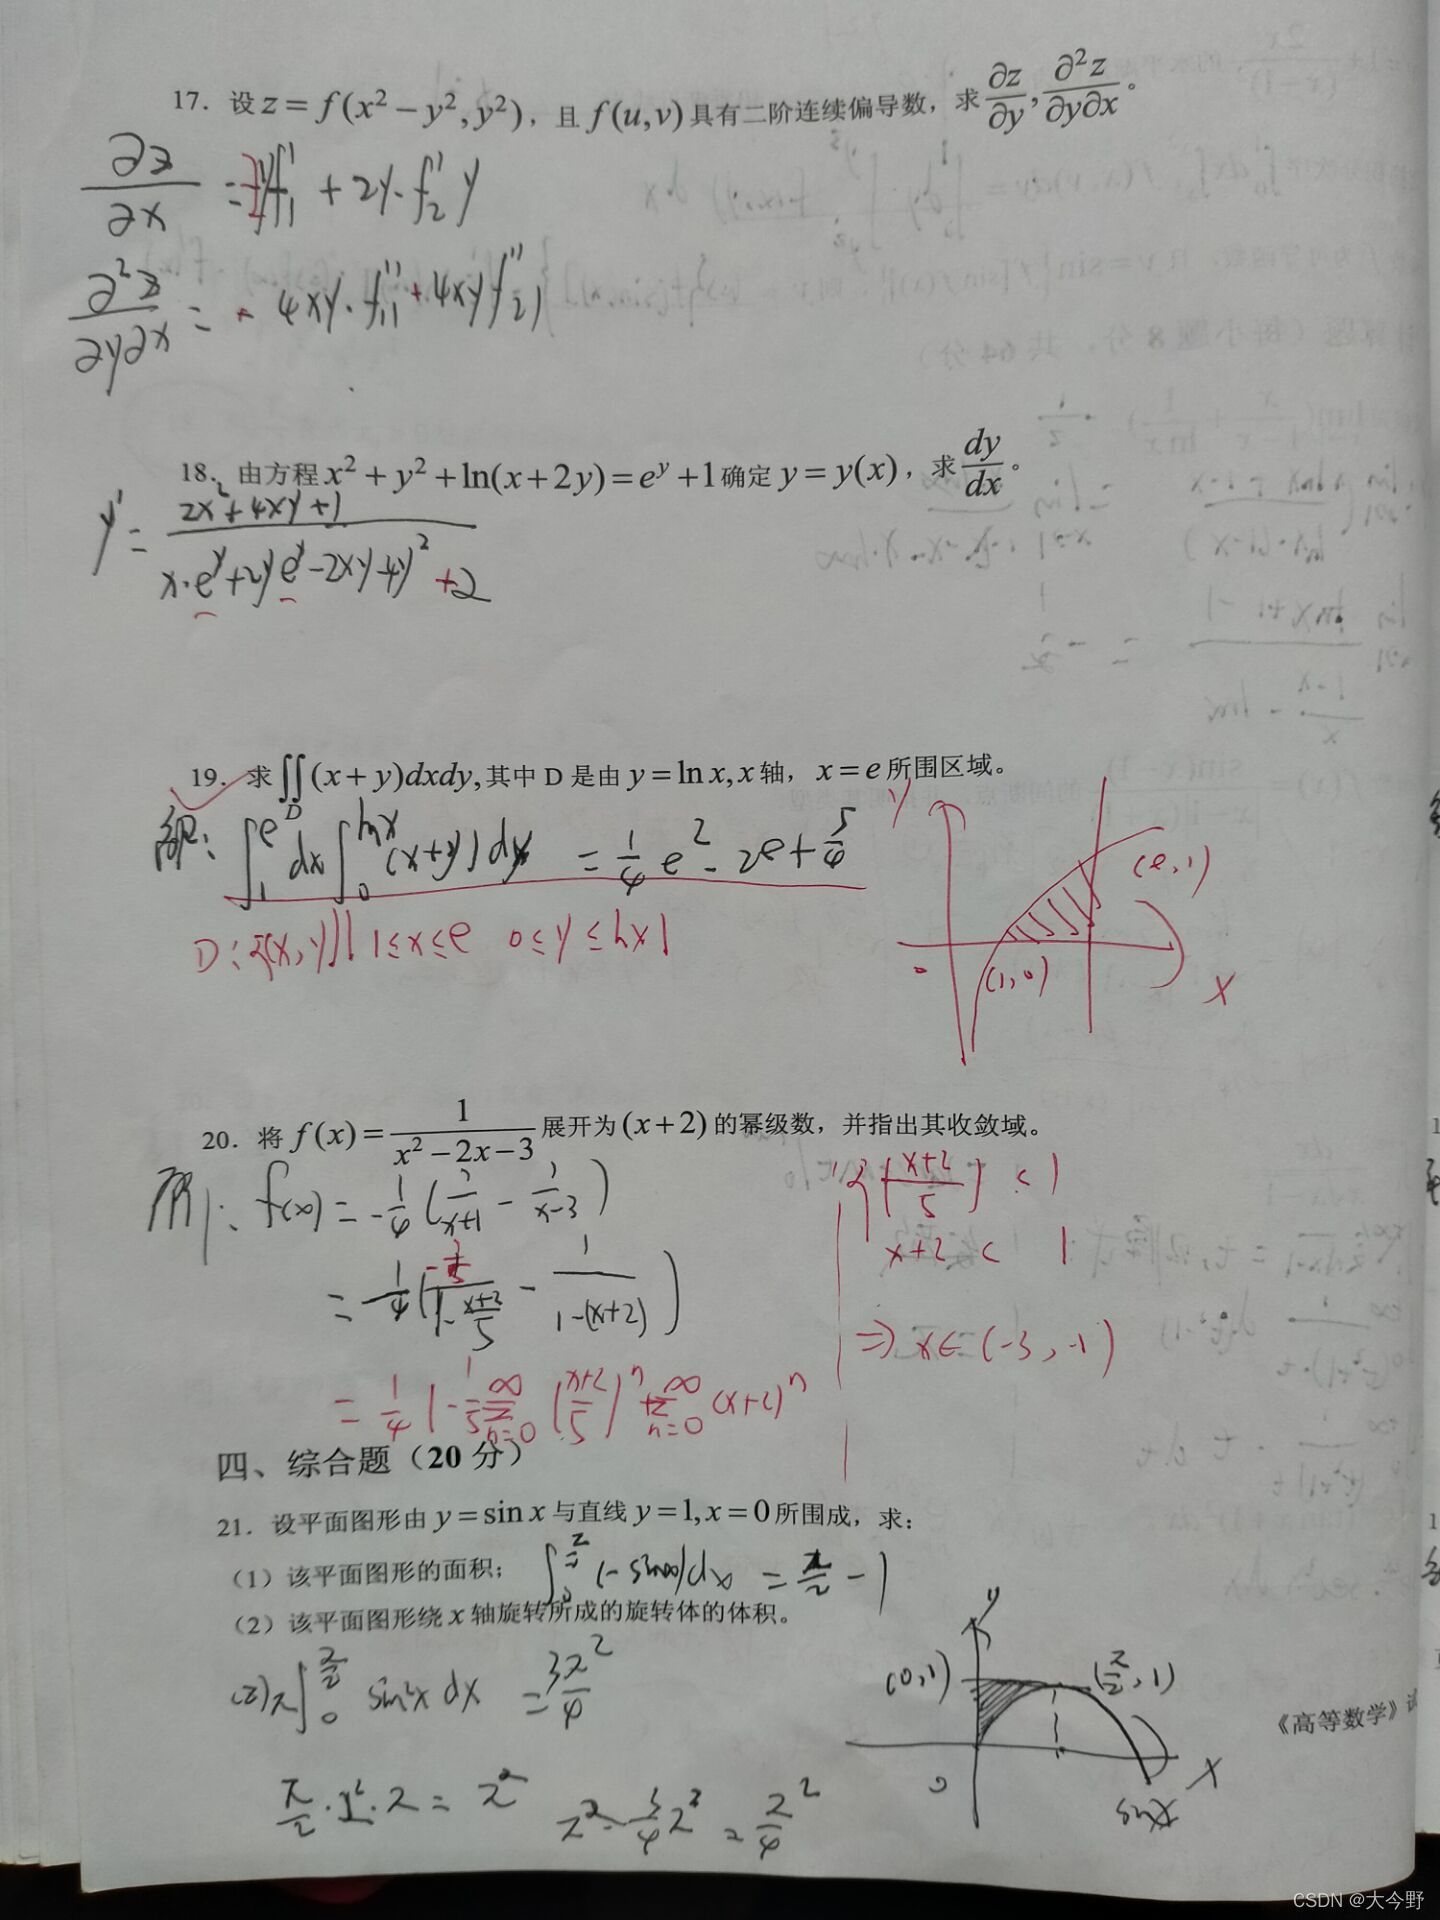 17. 设 z = f(x² − y², y²), 且 f(u,v) 具有二阶连续偏导数, 求 ∂z/∂y, ∂²z/∂y∂x 。
∂z/∂x = f'₁ + 2y·f'₂ y
∂²z/∂y∂x = - 4xy·f''₁₁ + 4xy f''₂₁
18. 由方程 x² + y² + ln(x + 2y) = e^y + 1 确定 y = y(x), 求 dy/dx 。
y' = (2x² + 4xy + 1)/(x·e^y + 2y e^y - 2xy - 4y² + 2)
19. 求 ∬_D (x + y)dxdy, 其中 D 是由 y = ln x, x 轴, x = e 所围区域。
解: ∫₁^e dx ∫₀^{lnx} (x+y) dy = 1/4 e² - 2e + 5/4
D: {(x,y)| 1≤x≤e 0≤y≤lnx}
y
(e,1)
(1,0)
0
x
20. 将 f(x) = 1/(x² − 2x − 3) 展开为 (x + 2) 的幂级数, 并指出其收敛域。
解: f(x) = -1/4 (1/(x+1) - 1/(x-3))
= -1/4 ( / (1 - (x+2)/5) - 1/(1-(x+2)))
= 1/4 (-1/5 ∑_{n=0}^∞ ((x+2)/5)^n + ∑_{n=0}^∞ (x+2)^n
|(x+2)/5| < 1
x+2 < 1
⇒ x∈(-3, -1)
四、综合题（20 分）
21. 设平面图形由 y = sin x 与直线 y = 1, x = 0 所围成, 求:
（1）该平面图形的面积; ∫₀^{π/2} (1-sinx)dx = π/2 - 1
（2）该平面图形绕 x 轴旋转所成的旋转体的体积。
(2) π∫₀^{π/2} sin²x dx = 3π²/4
π/2 · 1² · π = π²
π² - 3/4 π² = π²/4
y
(0,1)
(π/2, 1)
0
x
sinx
《高等数学》试
CSDN @大今野